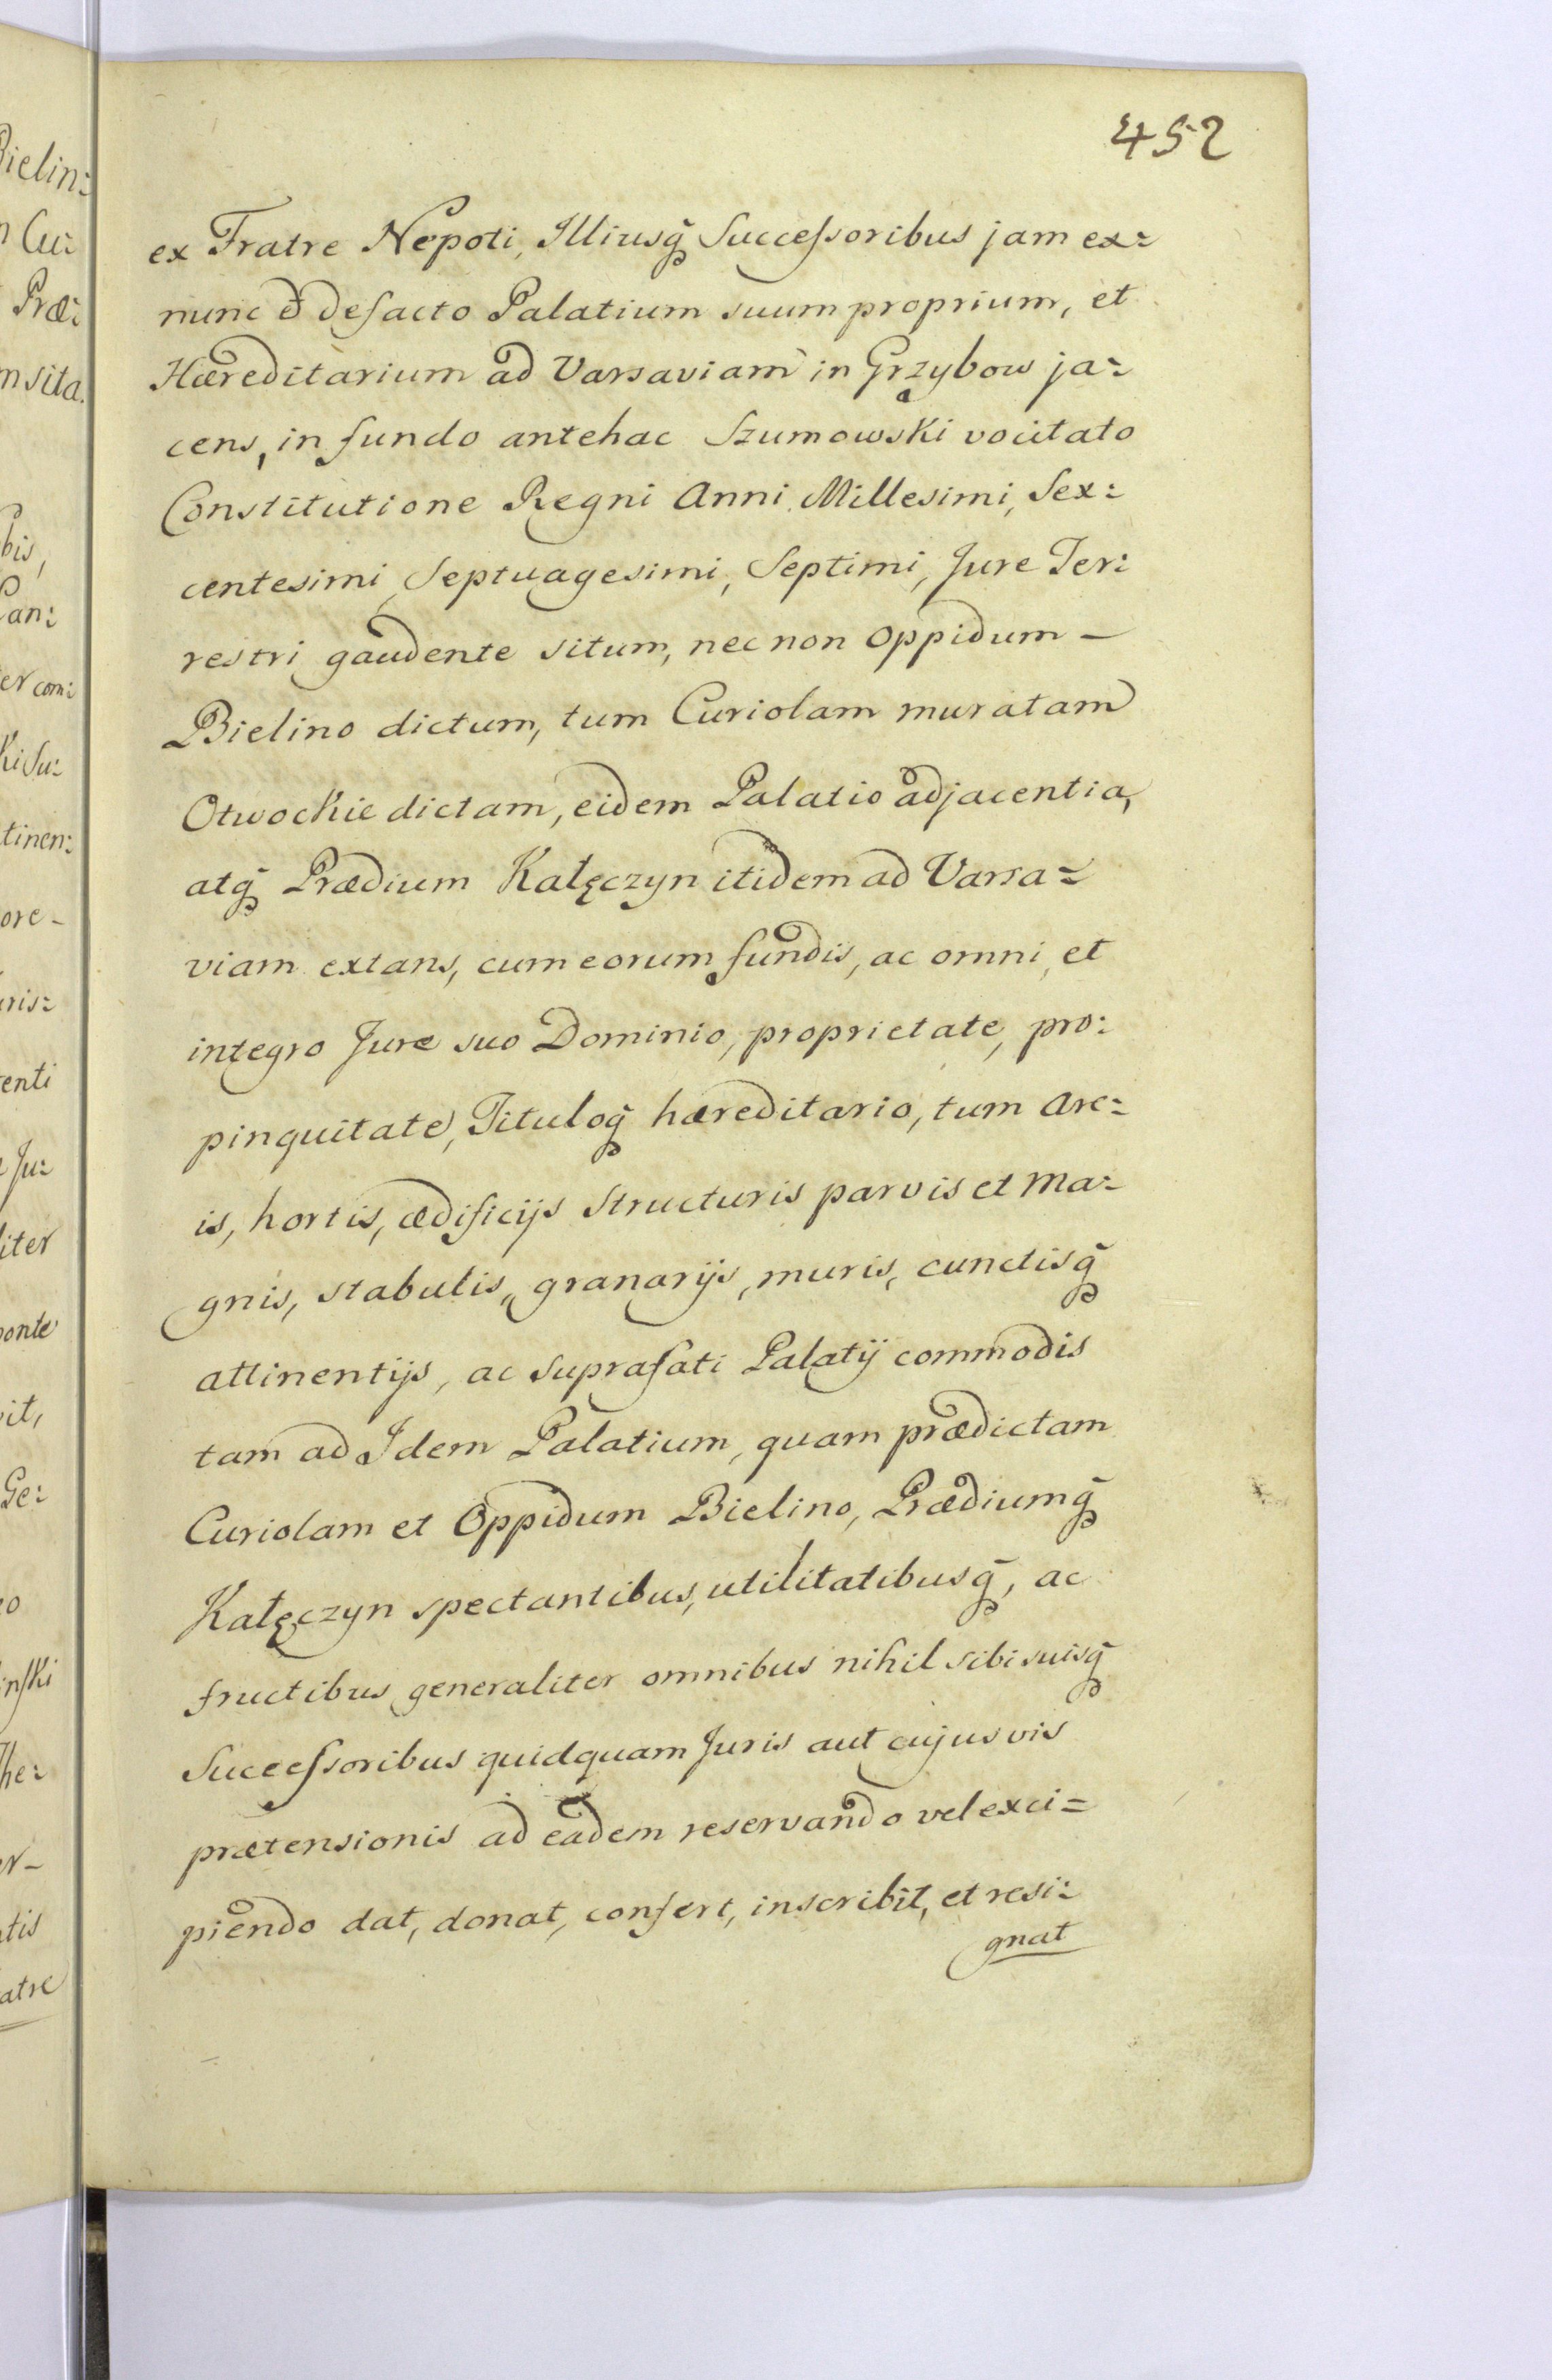 452
ex Fratre Nepoti, Illiusq̃ Successoribus jam ex=
nunc & defacto Palatium suum proprium, et
Hæreditarium ad Varsaviam in Grzybow ja=
cens, in fundo antehac Szumowski vocitato
Constitutione Regni Anni Millesimi, Sex=
centesimi, Septuagesimi, Septimi, Jure Ter=
restri gaudente situm, nec non Oppidum –
Bielino dictum, tum Curiolam muratam
Otwockie dictam, eidem Palatio adjacentia,
atq̃ Prædium Kałęczyn itidem ad Varsa=
viam extans, cum eorum fundis, ac omni, et
integro Jure suo Dominio, proprietate, pro=
pinquitate, Tituloq̃ hæreditario, tum Are=
is, hortis, ædificijs Structuris parvis et Ma=
gnis, stabulis, granarijs, muris, cunctisq̃
attinentijs, ac suprafati Palatij commodis
tam ad Idem Palatium, quam prædictam
Curiolam et Oppidum Bielino, Prædiumq̃
Kałęczyn spectantibus, utilitatibusq̃, ac
fructibus generaliter omnibus nihil sibi suisq̃
Successoribus quidquam Juris aut cujusvis
prætensionis ad eadem reservando vel exci=
piendo dat, donat, confert, inscribit, et resi=
gnat
Bielin=
Cu=
Præ=
sita.
bis,
an=
er com=
ki Su=
tinen=
ore –
uris=
enti
Ju=
liter
ponte
vit,
Ge=
inski
The=
atis
atre